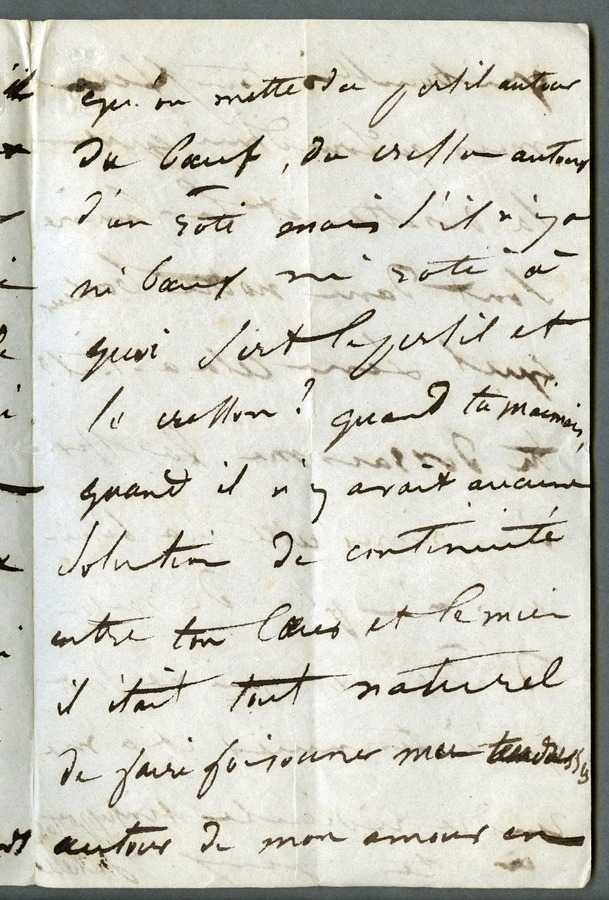 qu'on mette du persil autour
du bœuf, du cresson autour
d'un roti mais s'il n'y a
ni bœuf ni roti à
quoi sert le persil et
le cresson ? quand tu m'aimais,
quand il n'y avait aucune
solution de continuité
entre ton cœur et le mien
il était tout naturel
de faire foisonner mes tendresses
autour de mon amour en